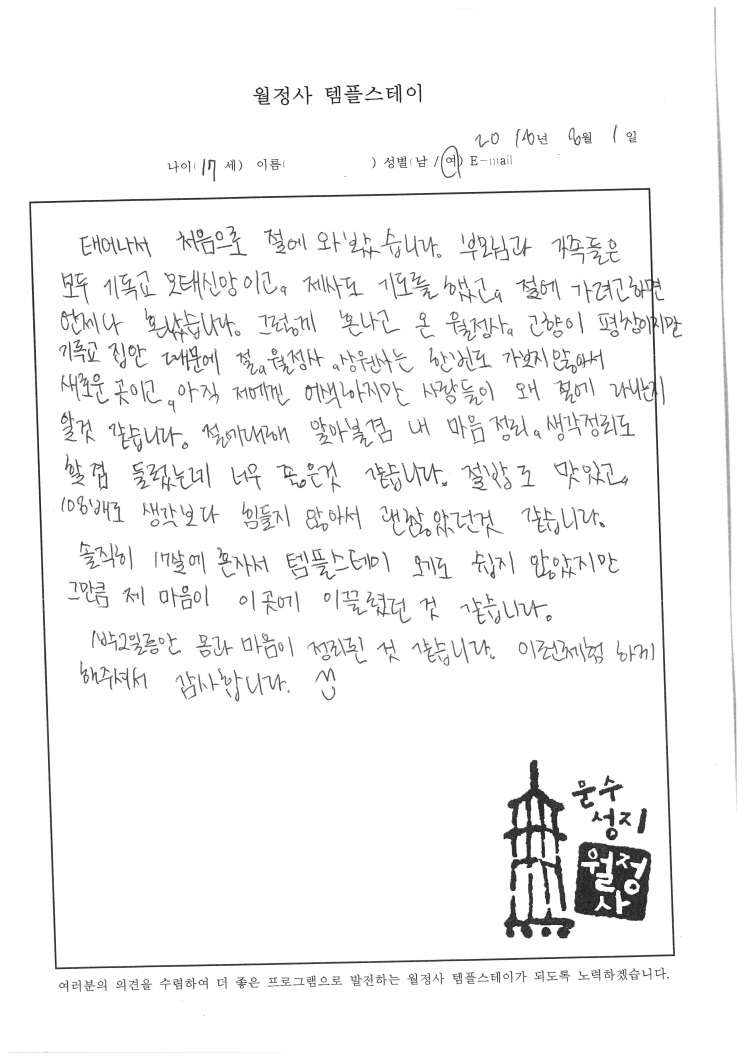 월정사 템플스테이
2016년 8월 1일
나이(17 세) 이름( ) 성별(남/여) E-mail
태어나서 처음으로 절에 와봤습니다. 부모님과 가족들은
모두 기독교 모태신앙이고, 제사도 기도를 했고, 절에 가려고하면
언제나 혼났습니다. 그렇게 혼나고 온 월정사, 고향이 평창이지만
기독교 집안 때문에 절, 월정사, 상원사는 한번도 가보지 않아서
새로운 곳이고, 아직 저에겐 어색하지만 사람들이 왜 절에 다니는지
알것 같습니다. 절에대해 알아볼겸 내 마음 정리, 생각정리도
할 겸 들렀는데 너무 좋은것 같습니다. 절밥도 맛있고,
108배도 생각보다 힘들지 않아서 괜찮았던것 같습니다.
솔직히 17살에 혼자서 템플스테이 오기도 쉽지 않았지만
그만큼 제 마음이 이곳에 이끌렸던 것 같습니다.
1박2일동안 몸과 마음이 정리된 것 같습니다. 이런체험 하게
해주셔서 감사합니다.
문수
성지
월정
사
여러분의 의견을 수렴하여 더 좋은 프로그램으로 발전하는 월정사 템플스테이가 되도록 노력하겠습니다.